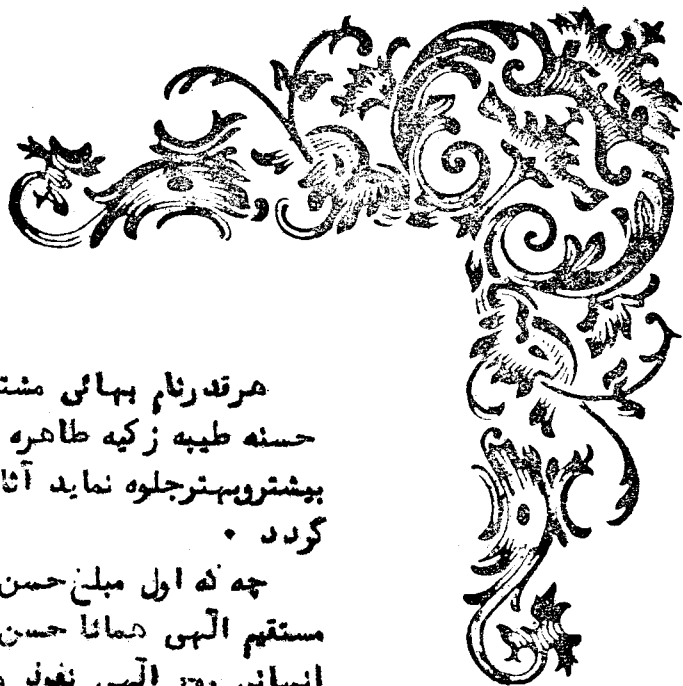 هرقدرنام بهائی مشت
حسنه طیبه زکیه طاهره
بیشتروبهترجلوه نماید آثا
گردد ٠
چه که اول مبلغ حسن
مستقیم الّهی همانا حسن
انسانی الّهی نفوذ